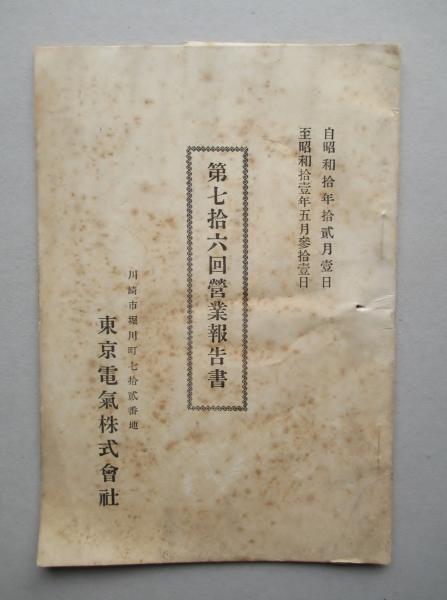 自昭和拾年拾貳月壹日
至昭和拾壹年五月參拾壹日
第七拾六回營業報告書
川崎市堀川町七拾貳番地
東京電氣株式會社